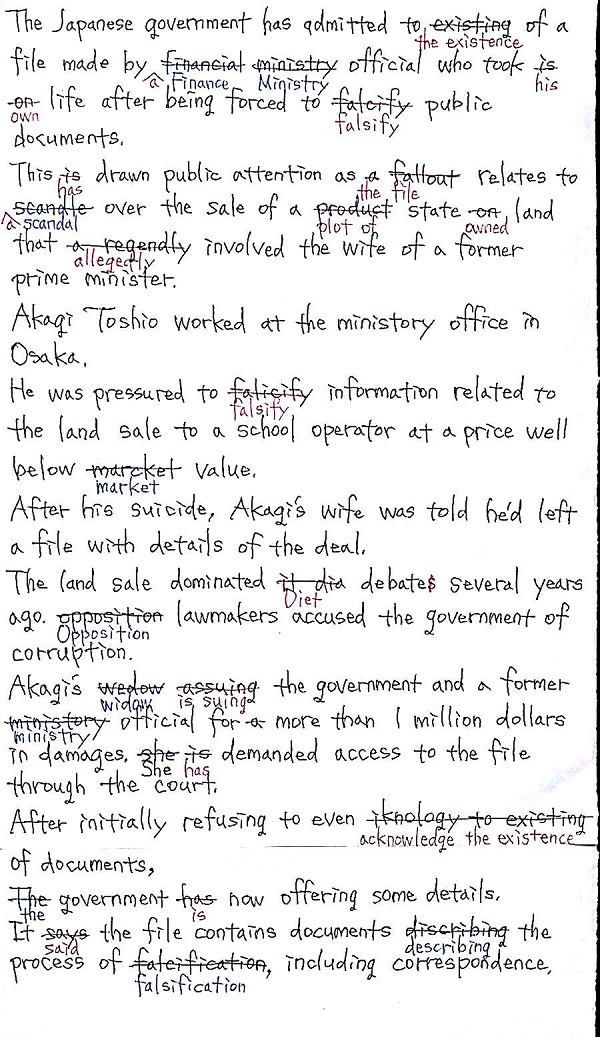 The Japanese government has admitted to existing of a
the existence
file made by financial ministry official who took is
a Finance Ministry his
on life after being forced to falcify public
own falsify
documents.
This is drawn public attention as a fallout relates to
has the file
scandle over the sale of a product state on land
a scandal plot of owned
that a regendly involved the wife of a former
allegedly
prime minister.
Akagi Toshio worked at the ministory office in
Osaka.
He was pressured to falicify information related to
falsify
the land sale to a school operator at a price well
below marcket value.
market
After his suicide, Akagi's wife was told he'd left
a file with details of the deal.
The land sale dominated it dia debates several years
Diet
ago. opposition lawmakers accused the government of
Opposition
corruption.
Akagi's wedow assuing the government and a former
widow is suing
ministory official for a more than 1 million dollars
ministry
in damages. she is demanded access to the file
She has
through the court.
After initially refusing to even iknology to existing
acknowledge the existence
of documents,
The government has now offering some details.
the is
It says the file contains documents discribing the
said describing
process of falcification, including correspondence.
falsification